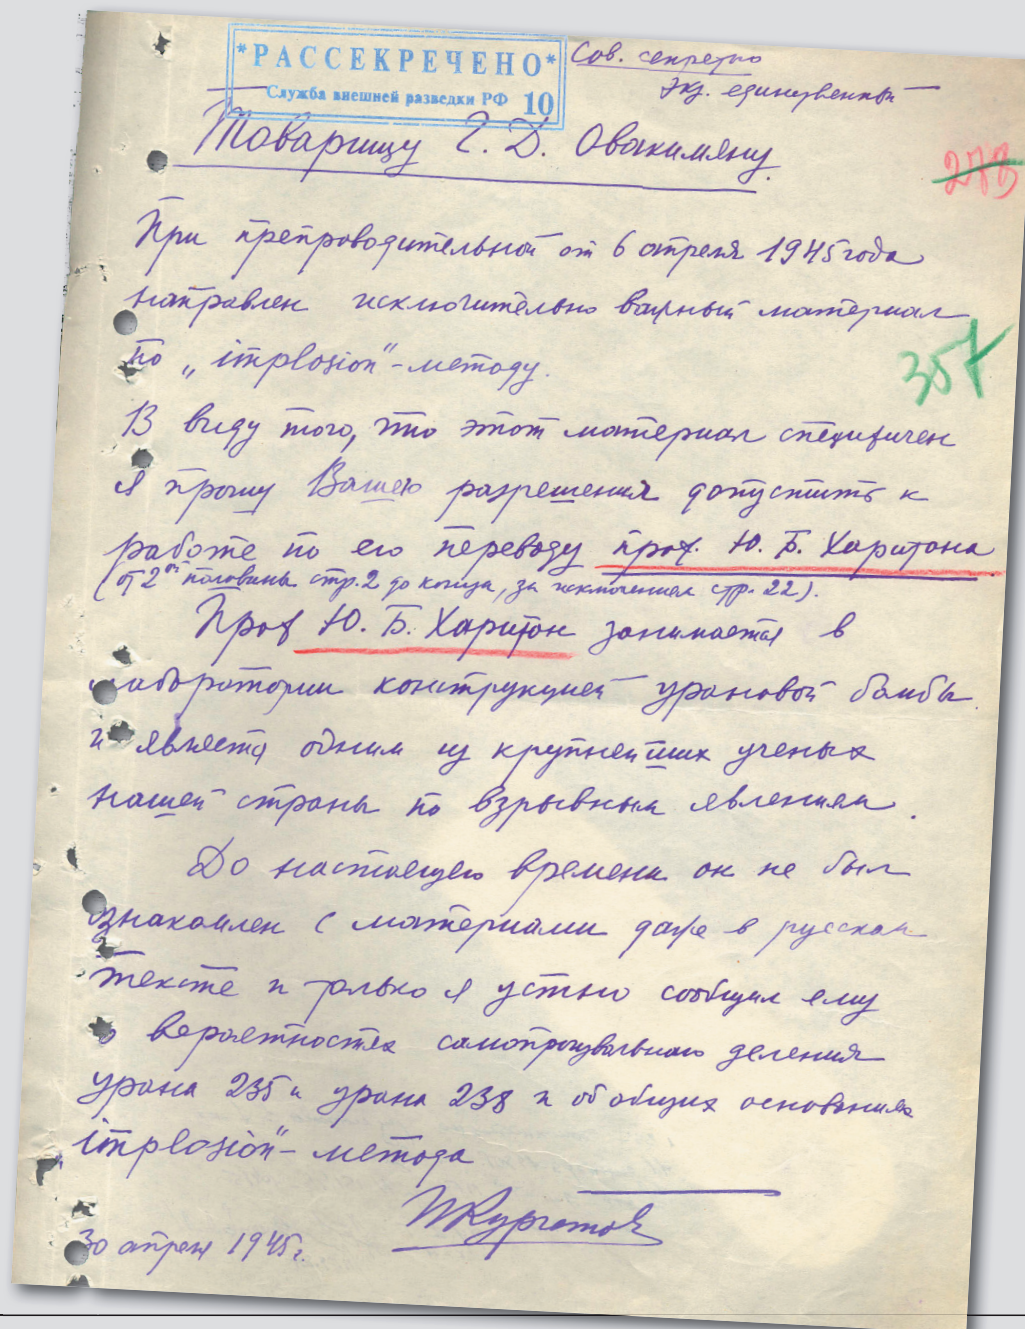 *РАССЕКРЕЧЕНО*
Служба внешней разведки РФ 10
Сов. секретно
экз. единственный
Товарищу Г. Д. Овакимяну.
273
При препроводительной от 6 апреля 1945 года
направлен исключительно важный материал
по „implosion“-методу.
357
В виду того, что этот материал специфичен
я прошу Вашего разрешения допустить к
работе по его переводу проф. Ю. Б. Харитона
(от 2ой половины стр. 2 до конца, за исключением стр. 22).
Проф Ю. Б. Харитон занимается в
лаборатории конструкцией урановой бомбы
и является одним из крупнейших ученых
нашей страны по взрывным явлениям.
До настоящего времени он не был
ознакомлен с материалами даже в русском
тексте и только я устно сообщил ему
о вероятностях самопроизвольного деления
урана 235 и урана 238 и об общих основаниях
implosion“-метода
ИКурчатов
30 апреля 1945 г.